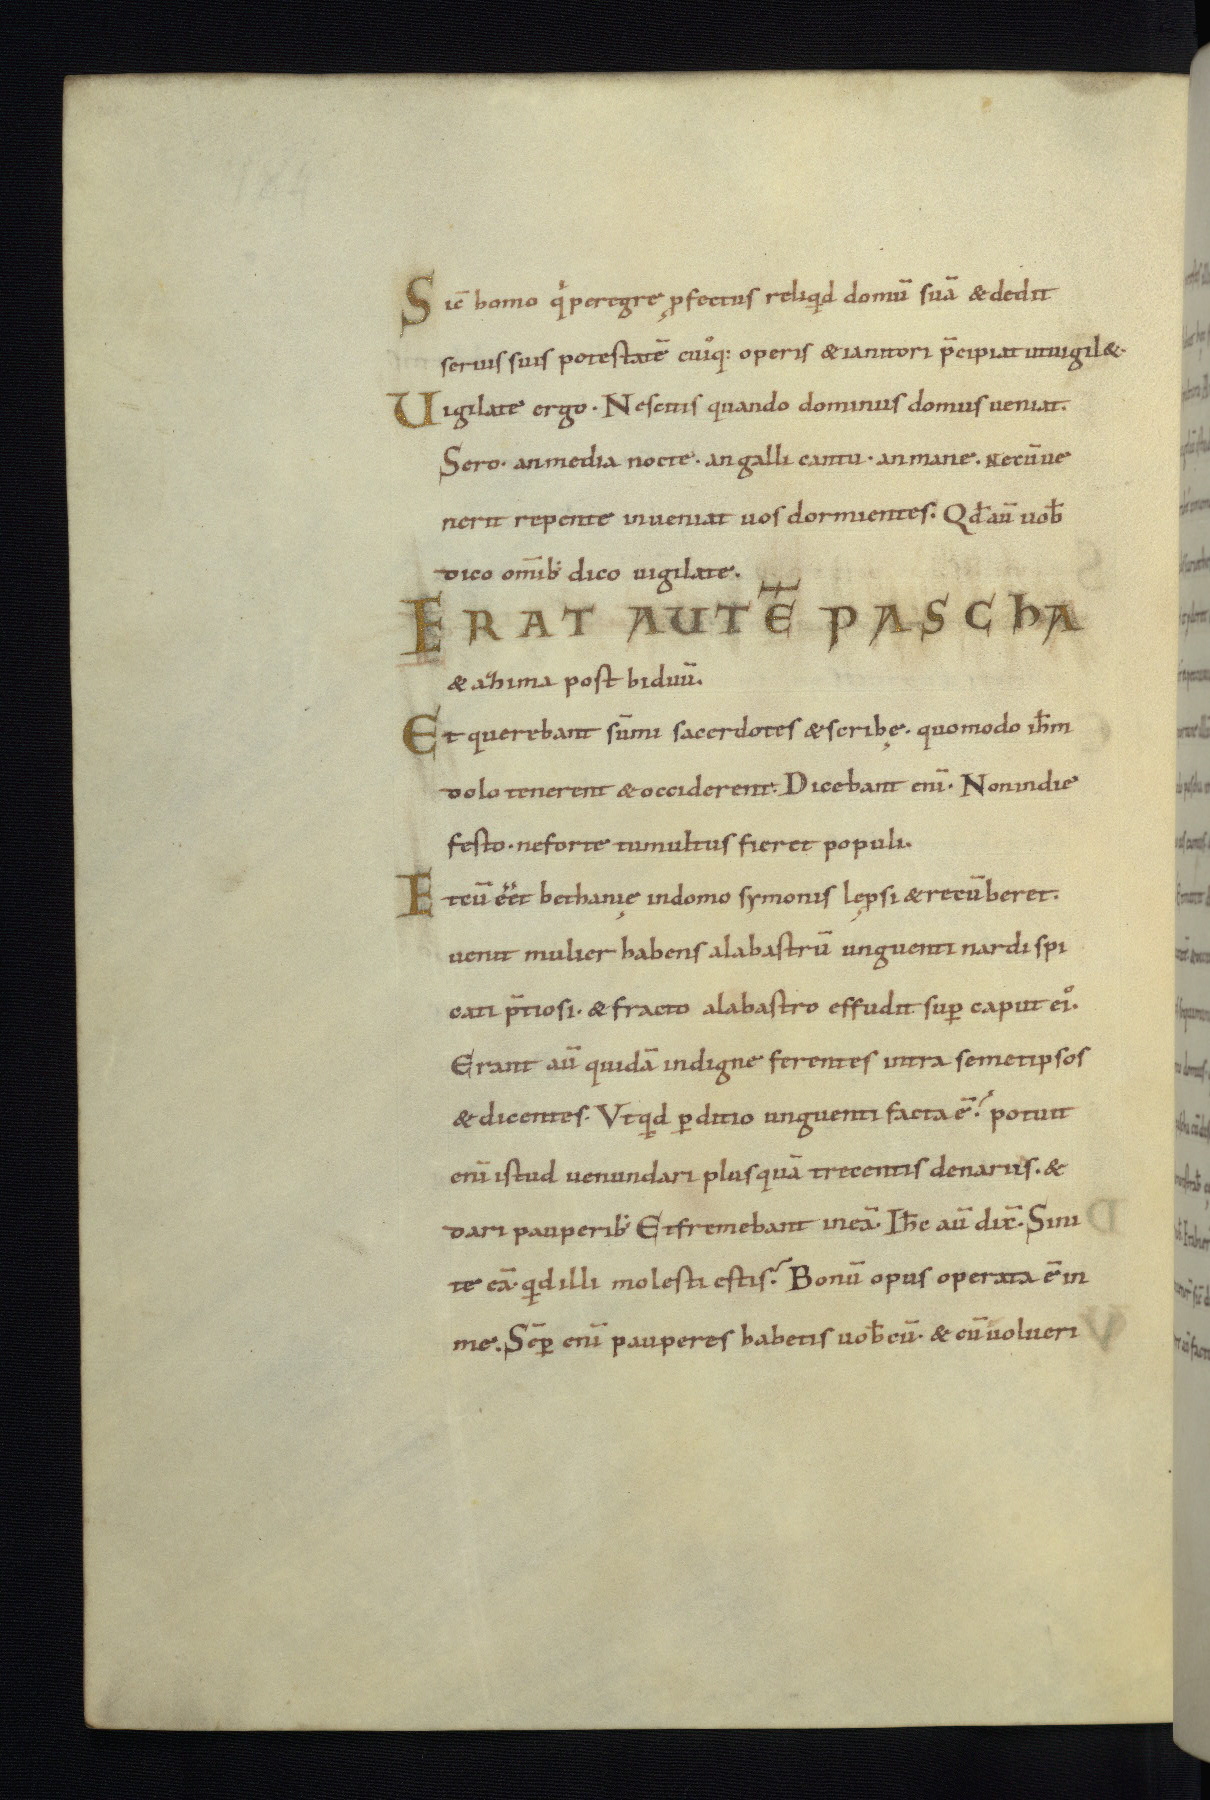 Sic̄ homo qͥ peregre ꝓfectus reliqͥd domū suā & dedit
seruis suis potestatē cuiꝰq: operis & ianitori p̄cipiat ut uigil&·
Uigilate ergo· Nescitis quando dominus domus ueniat.
Sero· an media nocte· an galli cantu· an mane. Ne cū ue
nerit repente inueniat uos dormientes. Qd̄ aū uob̄
dico om̄ib; dico uigilate.
ERAT AUTĒ PASCHA
& azima post biduū.
Et querebant sūmi sacerdotes & scribę· quomodo ih̄m
dolo tenerent & occiderent. Dicebant eni̅· Non in die
festo· ne forte tumultus fieret populi.
Et cū eēt bethanię in domo symonis lęprsi & recūberet.
uenit mulier habens alabastrū unguenti nardi spi
cati p̄tiosi· & fracto alabastro effudit suꝑ caput eiꝰ.
Erant aū quidā indigne ferentes intra semetipsos
& dicentes. Vt qͥd ꝑditio unguenti facta ē? potuit
eni̅ istud uenundari plus quā trecentis denariis. &
dari pauperib; Et fremebant in eā. Ih̄c aū dix̄. Sini
te eā· qͥd illi molesti estis? Bonū opus operata ē in
me. Sēꝑ eni̅ pauperes habetis uob̄cū. & cū uolueri